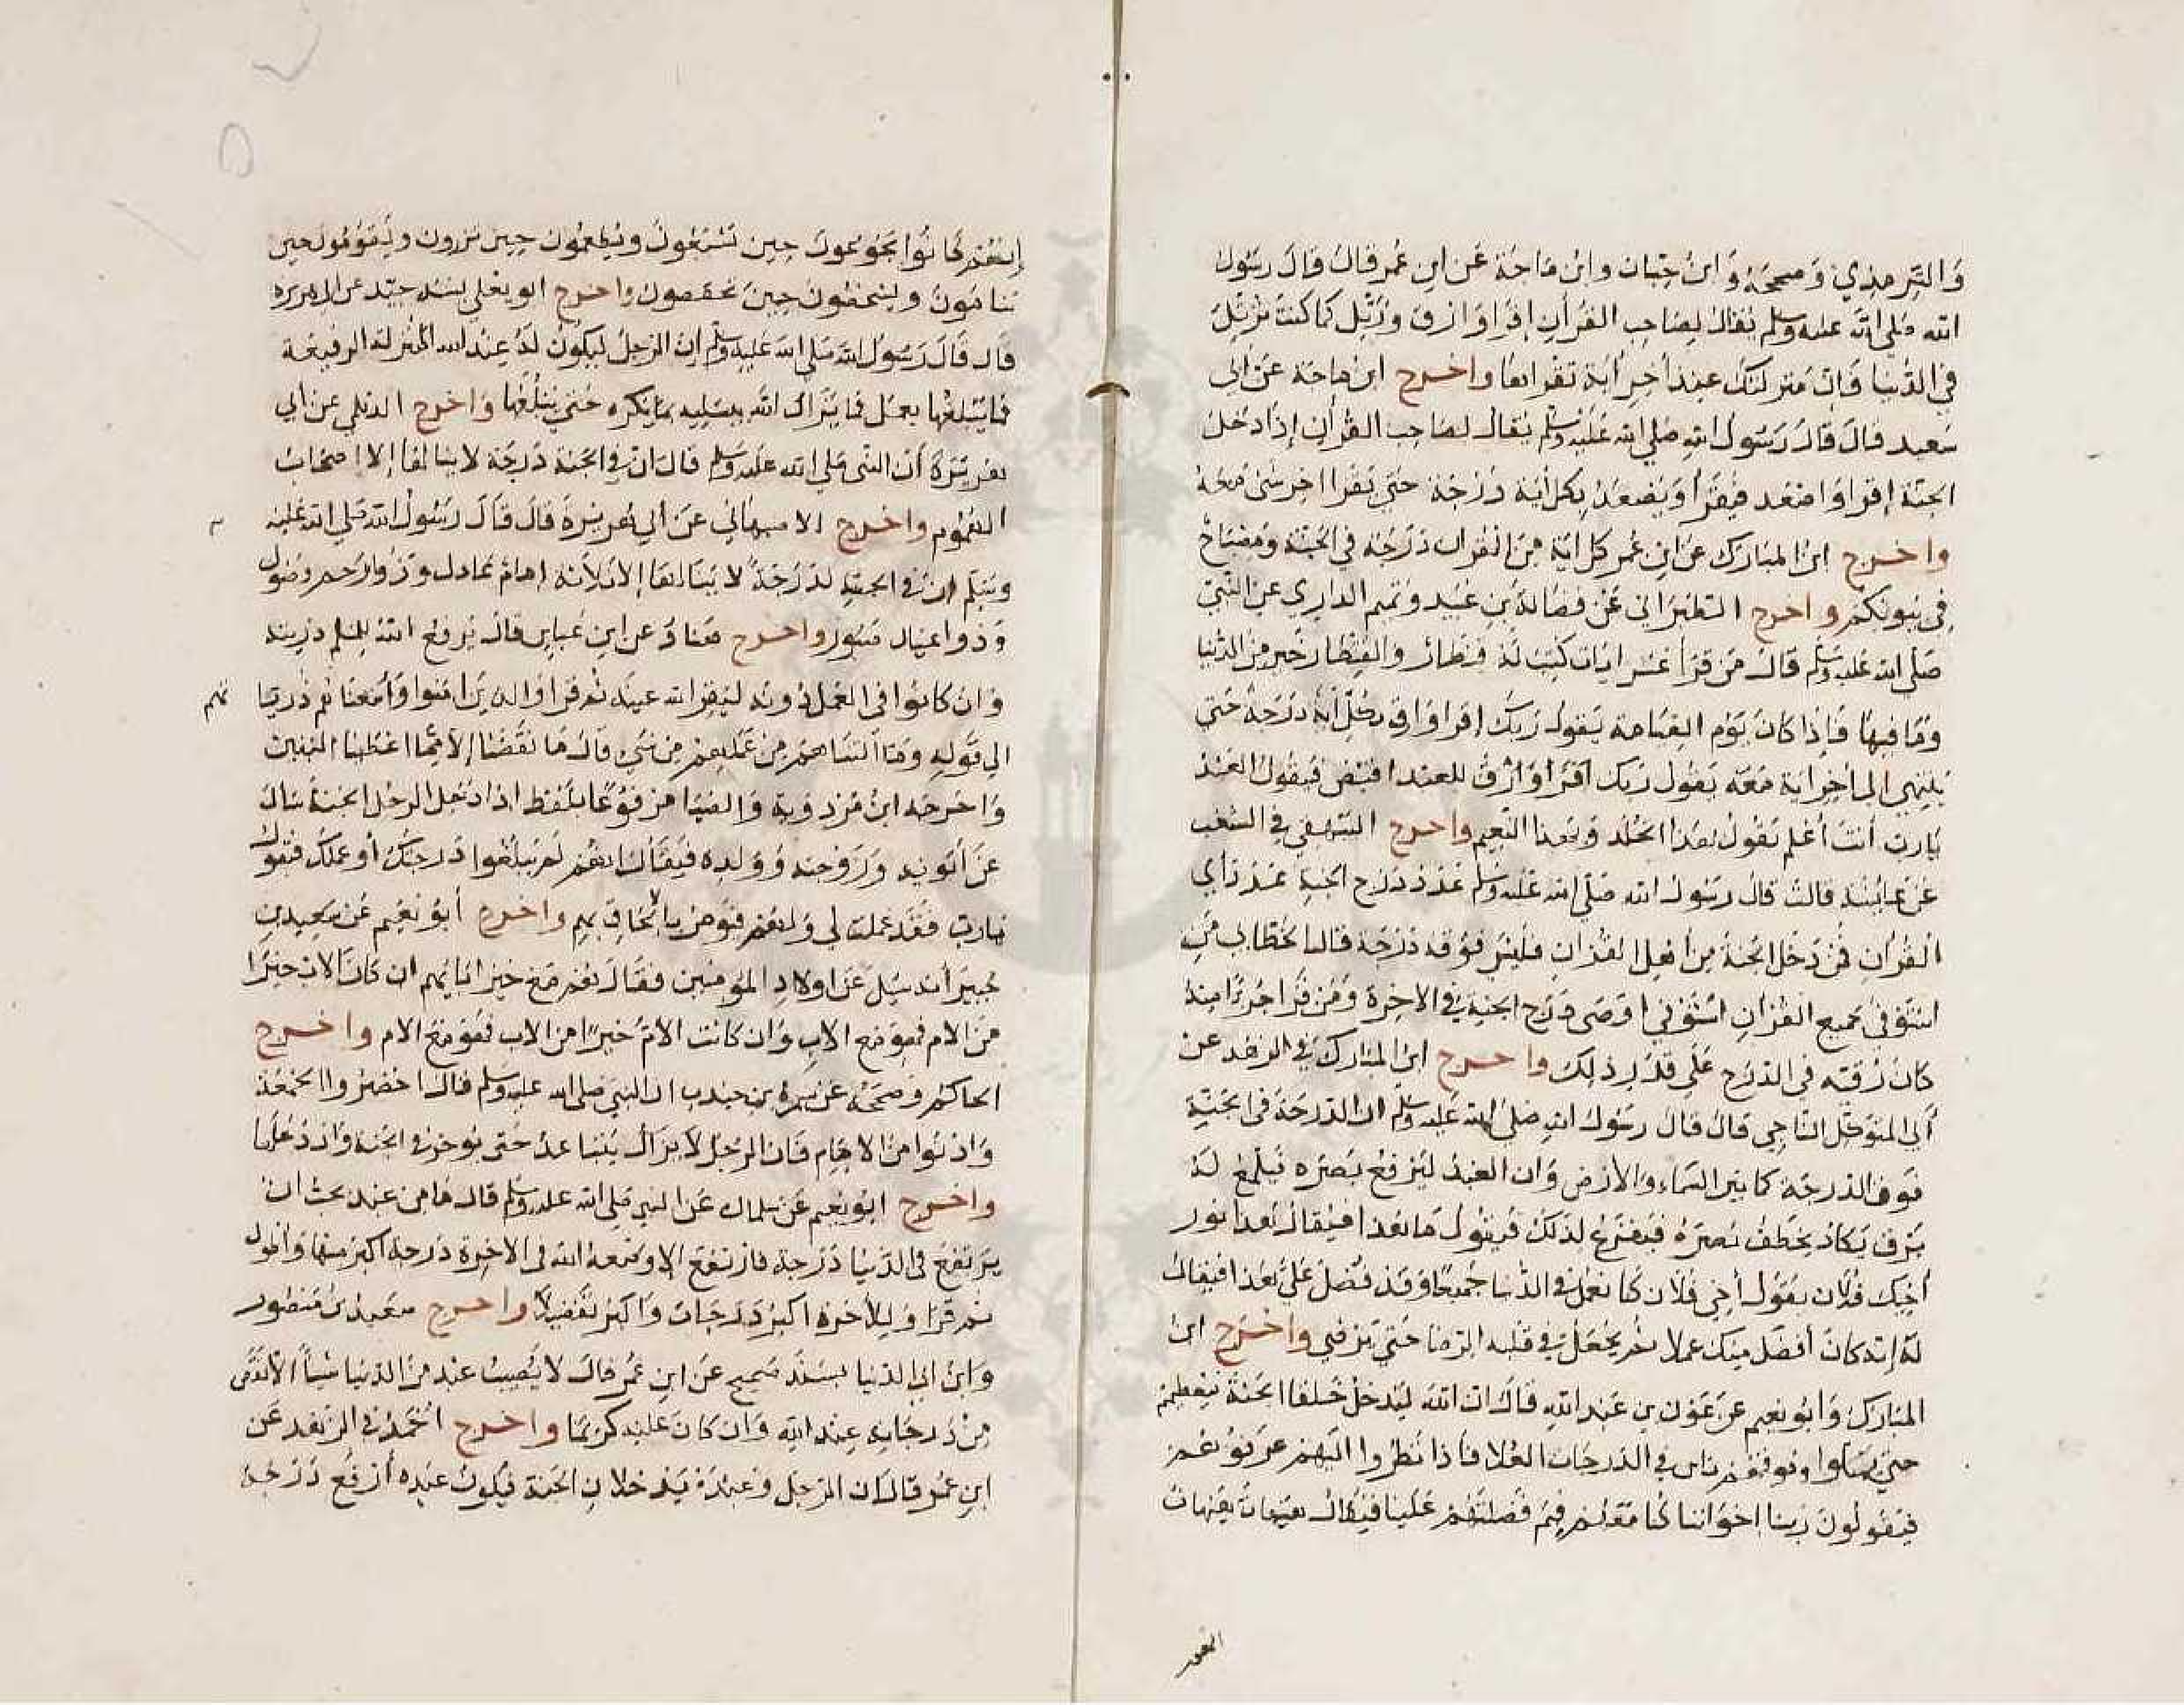 والترمذي وصححه وابن حبان وابن ماجة عن ابن عمر قال قال رسول
الله صلى الله عليه وسلم يقال لصاحب القرأن إقرا وارق ورتل كما كنت ترتل
في الدنيا فان منزلتك عند أخر أية تقراها واخرج ابن ماجة عن ابي
سعيد قال قال رسول الله صلى الله عليه وسلم يقال لصاحب القرأن إذا دخل
الجنة إقرا واصعد فيقرأ ويصعد بكل أية درجة حتى يقرا اخر شئ معه
واخرج ابن المبارك عن ابن عمر كل اية من القران درجة في الجنة ومصباح
في بيوتكم واخرج الطبراني عن فضالة بن عبيد وتميم الداري عن النبي
صلى الله عليه وسلم قال من قرأ عشر ايات كتب له قنطار والقنطار خير من الدنيا
وما فيها فإذا كان يوم القيامة يقول ربك اقرا وارق بكل أية درجة حتى
ينتهي الى أخر اية معه يقول ربك اقرأ وارق للعبد اقبض فيقول العبد
يارب أنت أعلم يقول بهذا الخلد وبهذا النعيم واخرج البيهقي في الشعب
عن عايشة قالت قال رسول الله صلى الله عليه وسلم عدد درج الجنة عدد أي
القرأن فمن دخل الجنة من أهل القرأن فليس فوقه درجة قال الخطابي من
استوفى جميع القرأن استوفى اقصى درج الجنة في الاخرة ومن قرا جزءا منه
كان رقيه في الدرج على قدر ذلك واخرج ابن المبارك في الزهد عن
أبي المتوكل الناجي قال قال رسول الله صلى الله عليه وسلم ان الدرجة في الجنة
فوق الدرجة كما بين السماء والأرض وان العبد ليرفع بصره فيلمع له
برق يكاد يخطف بصره فيفزع لذلك فيقول ما هذا فيقال هذا نور
أخيك فلان يقول أخي فلان كنا نعمل في الدنيا جميعا وقد فضل علي هكذا فيقال
له إنه كان أفضل منك عملا ثم يجعل في قلبه الرضا حتى يرضى واخرج ابن
المبارك وابو نعيم عن عون بن عبد الله قال ان الله ليدخل خلقا الجنة فيعطيهم
حتى يملوا وفوقهم ناس في الدرجات العلا فاذا نظروا اليهم عرفوهم
فيقولون ربنا اخواننا كنا معهم فيم فضلتهم علينا فيقال هيهات هيهات
انهم
إنهم كانوا يجوعون حين تشبعون ويظمؤن حين تروون ويقومون حين
تنامون ويشخصون حين تخفضون واخرج ابو يعلى بسند جيد عن ابي هريرة
قال قال رسول الله صلى الله عليه وسلم إن الرجل ليكون له عند الله المنزلة الرفيعة
فما يبلغها بعمل فما يزال الله يبتليه بما يكره حتى يبلغها واخرج الديلمي عن ابي
هريرة أن النبي صلى الله عليه وسلم قال ان في الجنة درجة لا ينالها إلا اصحاب
الهموم واخرج الاصبهاني عن ابي هريرة قال قال رسول الله صلى الله عليه
وسلم ان في الجنة لدرجة لا ينالها إلا ثلاثة إمام عادل وذو رحم وصول
وذو اعيال صبور واخرج هناد عن ابن عباس قال يرفع الله للمسلم ذريته
وان كانوا في العمل دونه ليقر الله عينه ثم قرا والذين امنوا وأتبعناهم ذريتهم
الى قوله وما ألتناهم من عملهم من شئ قال ما نقصنا الأباء مما اعطينا البنين
واخرجه ابن مردوية والضيا مرفوعا بلفظ اذا دخل الرجل الجنة سال
عن أبويه وزوجته وولده فيقال انهم لم يبلغوا درجتك أو عملك فيقول
يارب فقد عملت لي ولهم فيؤمر بالحاقهم واخرج أبو نعيم عن سعيد بن
جبير أنه سيل عن اولاد المؤمنين فقال هم مع خير ابايهم ان كان الاب خيرا
من الام فهو مع الاب وان كانت الام خيرا من الاب فهو مع الام واخرج
الحاكم وصححه عن سمرة بن جندب ان النبي صلى الله عليه وسلم قال احضروا الجمعة
وادنوا من الامام فان الرجل لا يزال يتباعد حتى يوخر في الجنة وان دخلها
واخرج ابو نعيم عن سلمان عن النبي صلى الله عليه وسلم قال ما من عبد يحب ان
يرتفع في الدنيا درجة فارتفع الا وضعه الله في الاخرة درجة اكبر منها واطول
ثم قرا وللأخرة اكبر درجات واكبر تفضيلا واخرج سعيد بن منصور
وابن ابي الدنيا بسند صحيح عن ابن عمر قال لا يصيب عبد من الدنيا شيأ الا نقص
من درجاته عند الله وان كان عليه كريما واخرج أحمد في الزهد عن
ابن عمر قال ان الرجل وعبده يدخلان الجنة فيكون عبده أرفع درجة